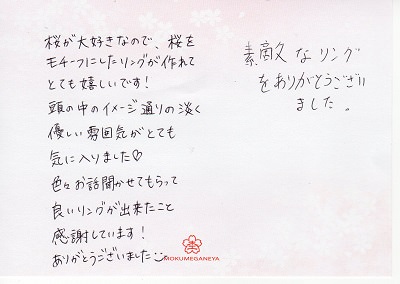 桜が大好きなので、桜を
モチーフにしたリングが作れて
とても嬉しいです!
頭の中のイメージ通りの淡く
優しい雰囲気がとても
気に入りました♡
色々お話聞かせてもらって
良いリングが出来たこと
感謝しています!
ありがとうございました
MOKUMEGANEYA
素敵なリング
をありがとうござい
ました。